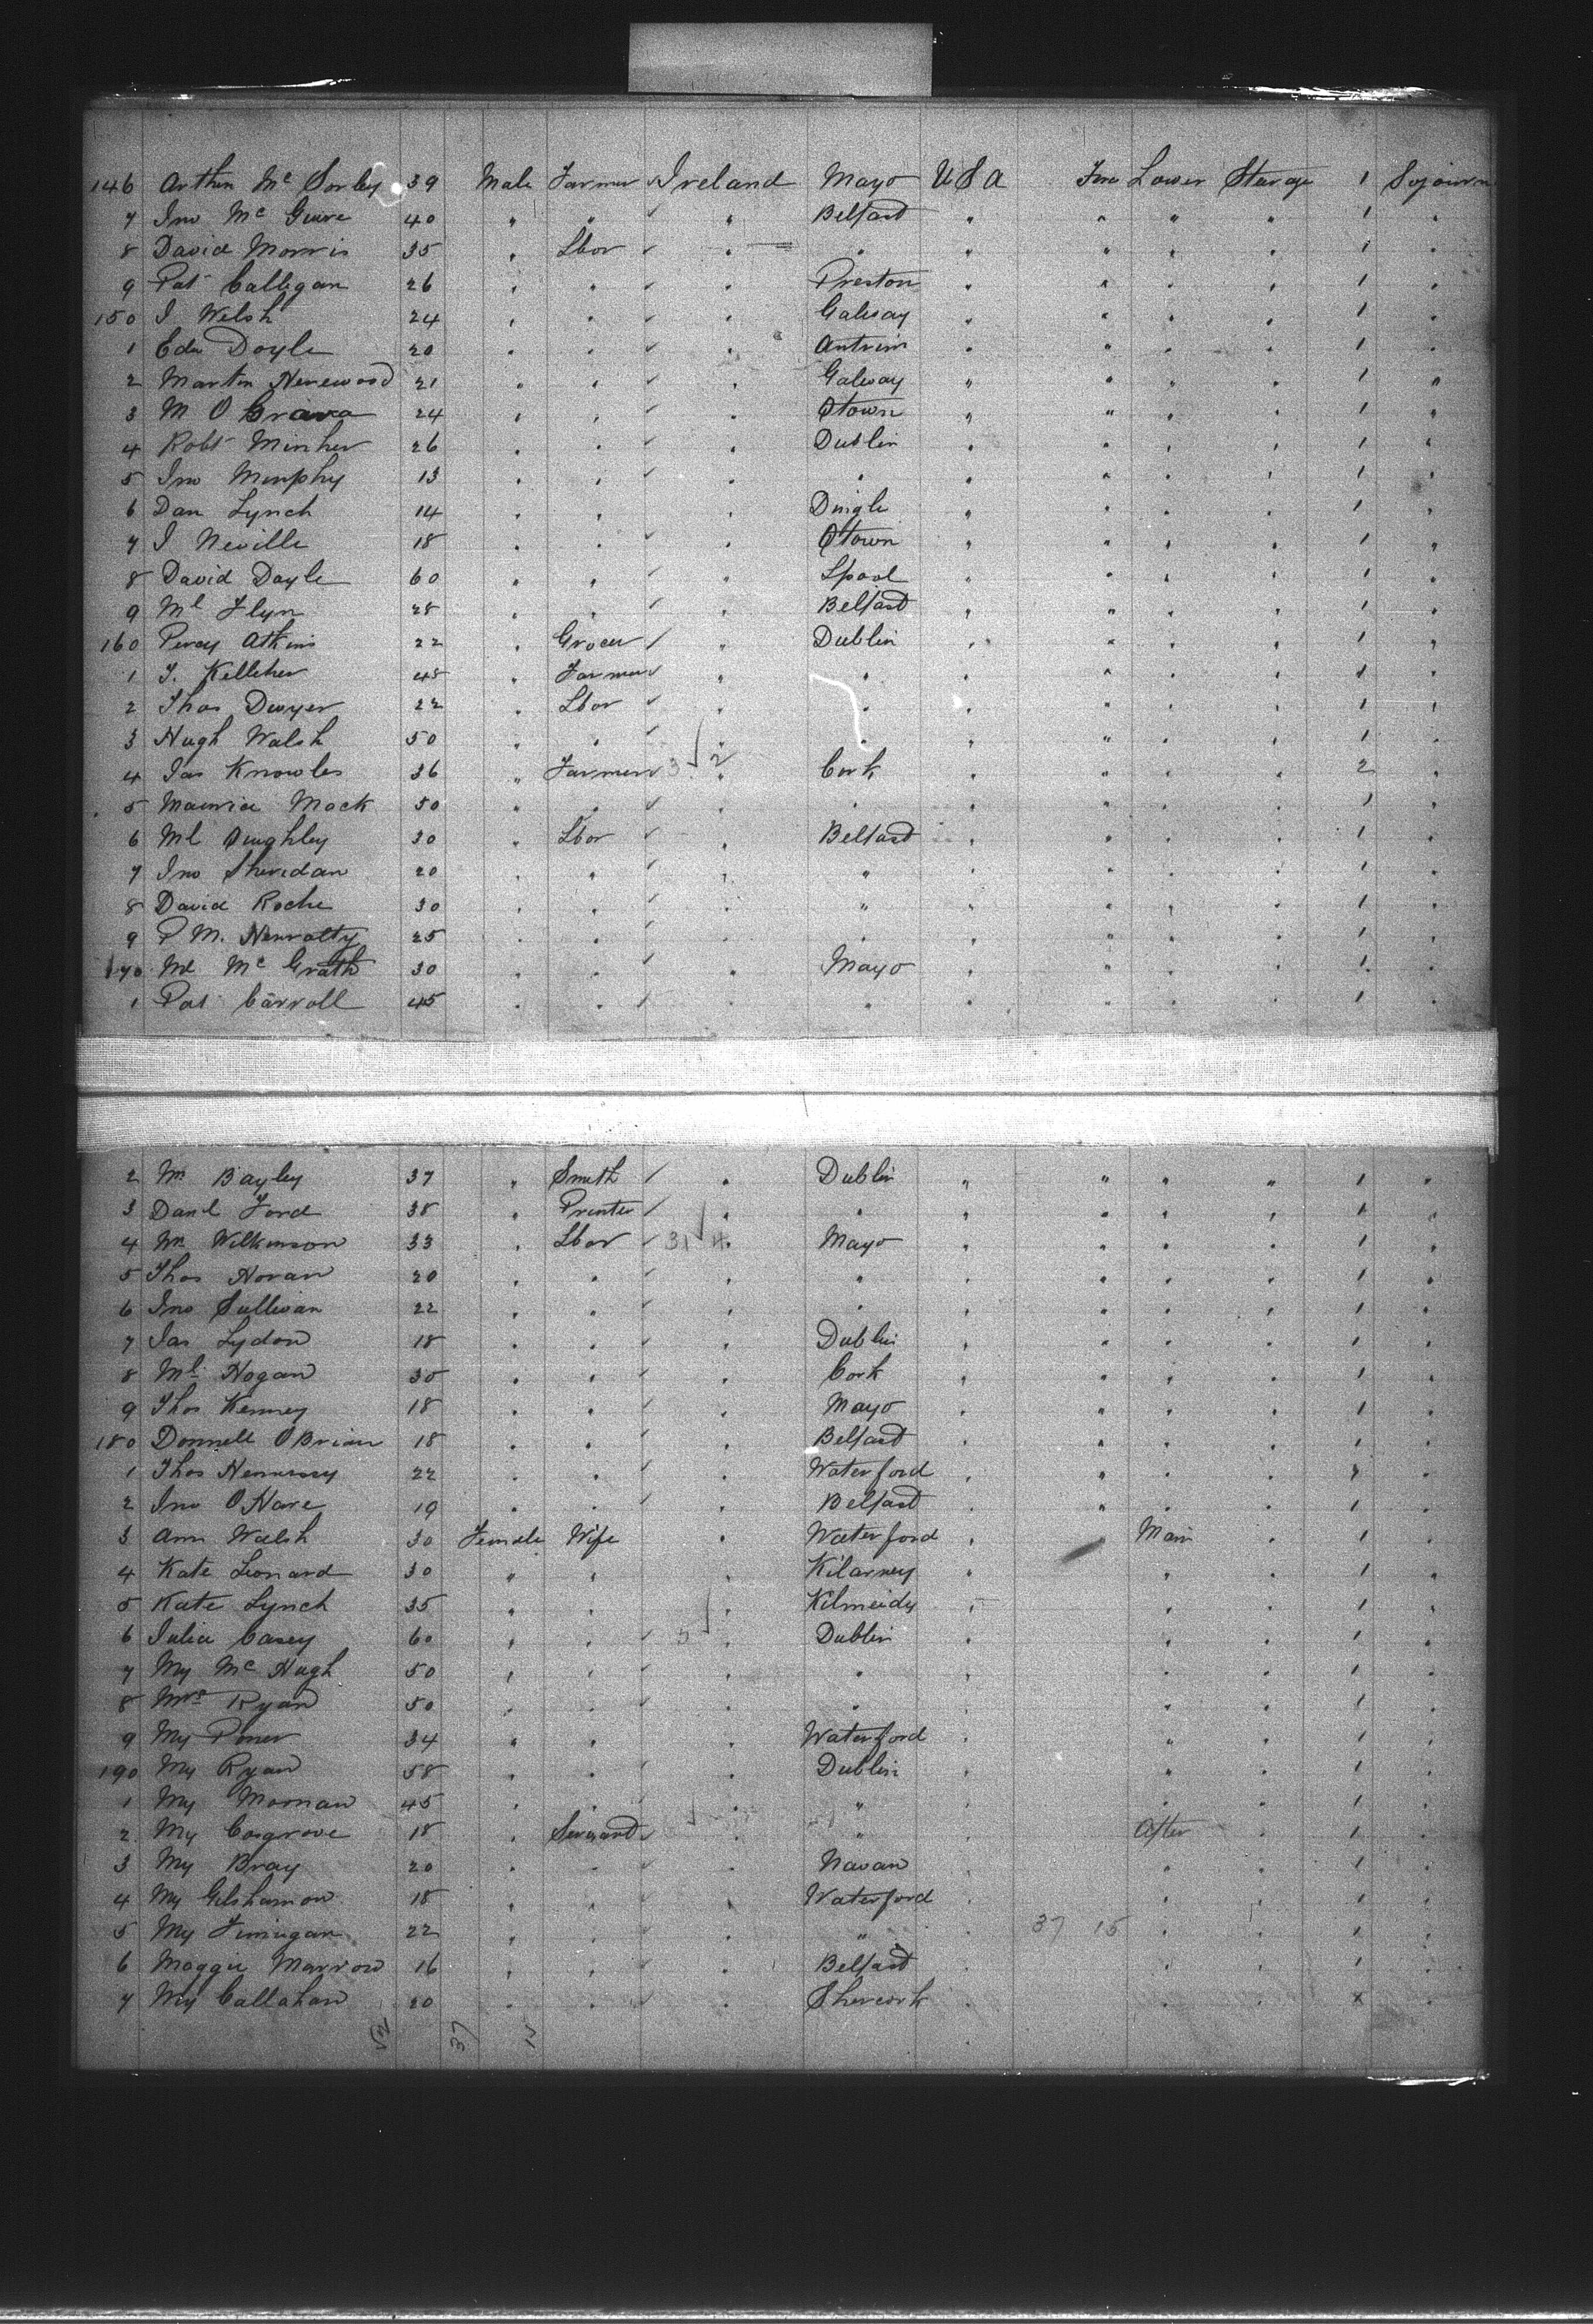 146 Arthur Mc Sorley 39 Male Farmer Ireland Mayo U S A Fore Lower Sterage 1 Sojourn
7 Jno Mc Guire 40 " " " Belfast " " " " 1 "
8 David Morris 35 " Lbor " " " " " " 1 "
9 Pat Calligan 26 " " " Preston " " " " 1 "
150 J Welsh 24 " " " Galway " " " " 1 "
1 Edw Doyle 20 " " " Antrim " " " " 1 "
2 Martin Herewood 21 " " " Galway " " " " 1 "
3 M O 24 " " " Qtown " " " " 1 "
4 Robt Minher 26 " " " Dublin " " " " 1 "
5 Jno Murphy 13 " " " " " " " " 1 "
6 Dan Lynch 14 " " " Dingle " " " " 1 "
7 J Neville 18 " " " Qtown " " " " 1 "
8 David Doyle 60 " " " Lpool " " " " 1 "
9 Ml Flyn 28 " " " Belfast " " " " 1 "
160 Percy Atkins 22 " Grocer " Dublin " " " " 1 "
1 J. Kelleher 48 " Farmer " " " " " " 1 "
2 Thos Dwyer 22 " Lbor " " " " " " 1 "
3 Hugh Walsh 50 " " " " " " " " 1 "
4 Jas Knowles 36 " Farmer 3 2 " Cork " " " " 2 "
5 Maurice Mack 50 " " " " " " " " 1 "
6 Ml 30 " Lbor " Belfast " " " " 1 "
7 Jno Sheridan 20 " " " " " " " " 1 "
8 David Roche 30 " " " " " " " " 1 "
9 P M. Henratty 25 " " " " " " " " 1 "
170 Ml Mc Grath 30 " " " Mayo " " " " 1 "
1 Pat Carroll 45 " " " " " " " " 1 "
2 Wm Bayley 37 " Smith " Dublin " " " " 1 "
3 Danl Ford 38 " Printer " " " " " " 1 "
4 Wm Wilkinson 33 " Lbor 31 4 " Mayo " " " " 1 "
5 Thos Horan 20 " " " " " " " " 1 "
6 Jno Sullivan 22 " " " " " " " " 1 "
7 Jas Lydon 18 " " " Dublin " " " " 1 "
8 Ml Hogan 30 " " " Cork " " " " 1 "
9 Thos Kenney 18 " " " Mayo " " " " 1 "
180 Donnell O Brian 18 " " " Belfast " " " " 1 "
1 Thos Hennessy 22 " " " Waterford " " " " 1 "
2 Jno O Hare 19 " " " Belfast " " " " 1 "
3 Ann Walsh 30 Female Wife " Waterford " Main " 1 "
4 Kate Leonard 30 " " " Kilarney " " " 1 "
5 Kate Lynch 35 " " " Kilmeidy " " " 1 "
6 Julia Casey 60 " " 5 " Dublin " " " 1 "
7 My Mc Hugh 50 " " " " " " " 1 "
8 Mrs Ryan 50 " " " " " " " 1 "
9 My Power 34 " " " Waterford " " " 1 "
190 My Ryan 58 " " " Dublin " " " 1 "
1 My Moonan 45 " " " " " " " 1 "
2 My Cosgrove 18 " Servant " " " After " 1 "
3 My Bray 20 " " " Navan " " " 1 "
4 My Gilshannon 18 " " " Waterford " " " 1 "
5 My Finnigan 22 " " " " " 37 15 " " 1 "
6 Maggie Marrow 16 " " " Belfast " " " 1 "
7 My Callahan 20 " " " Shercork " " " x "
37